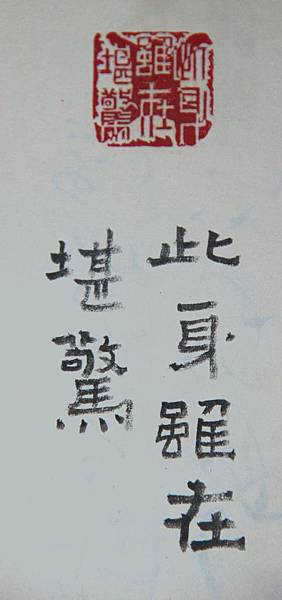 此身
雖在
堪驚
此身雖在
堪驚